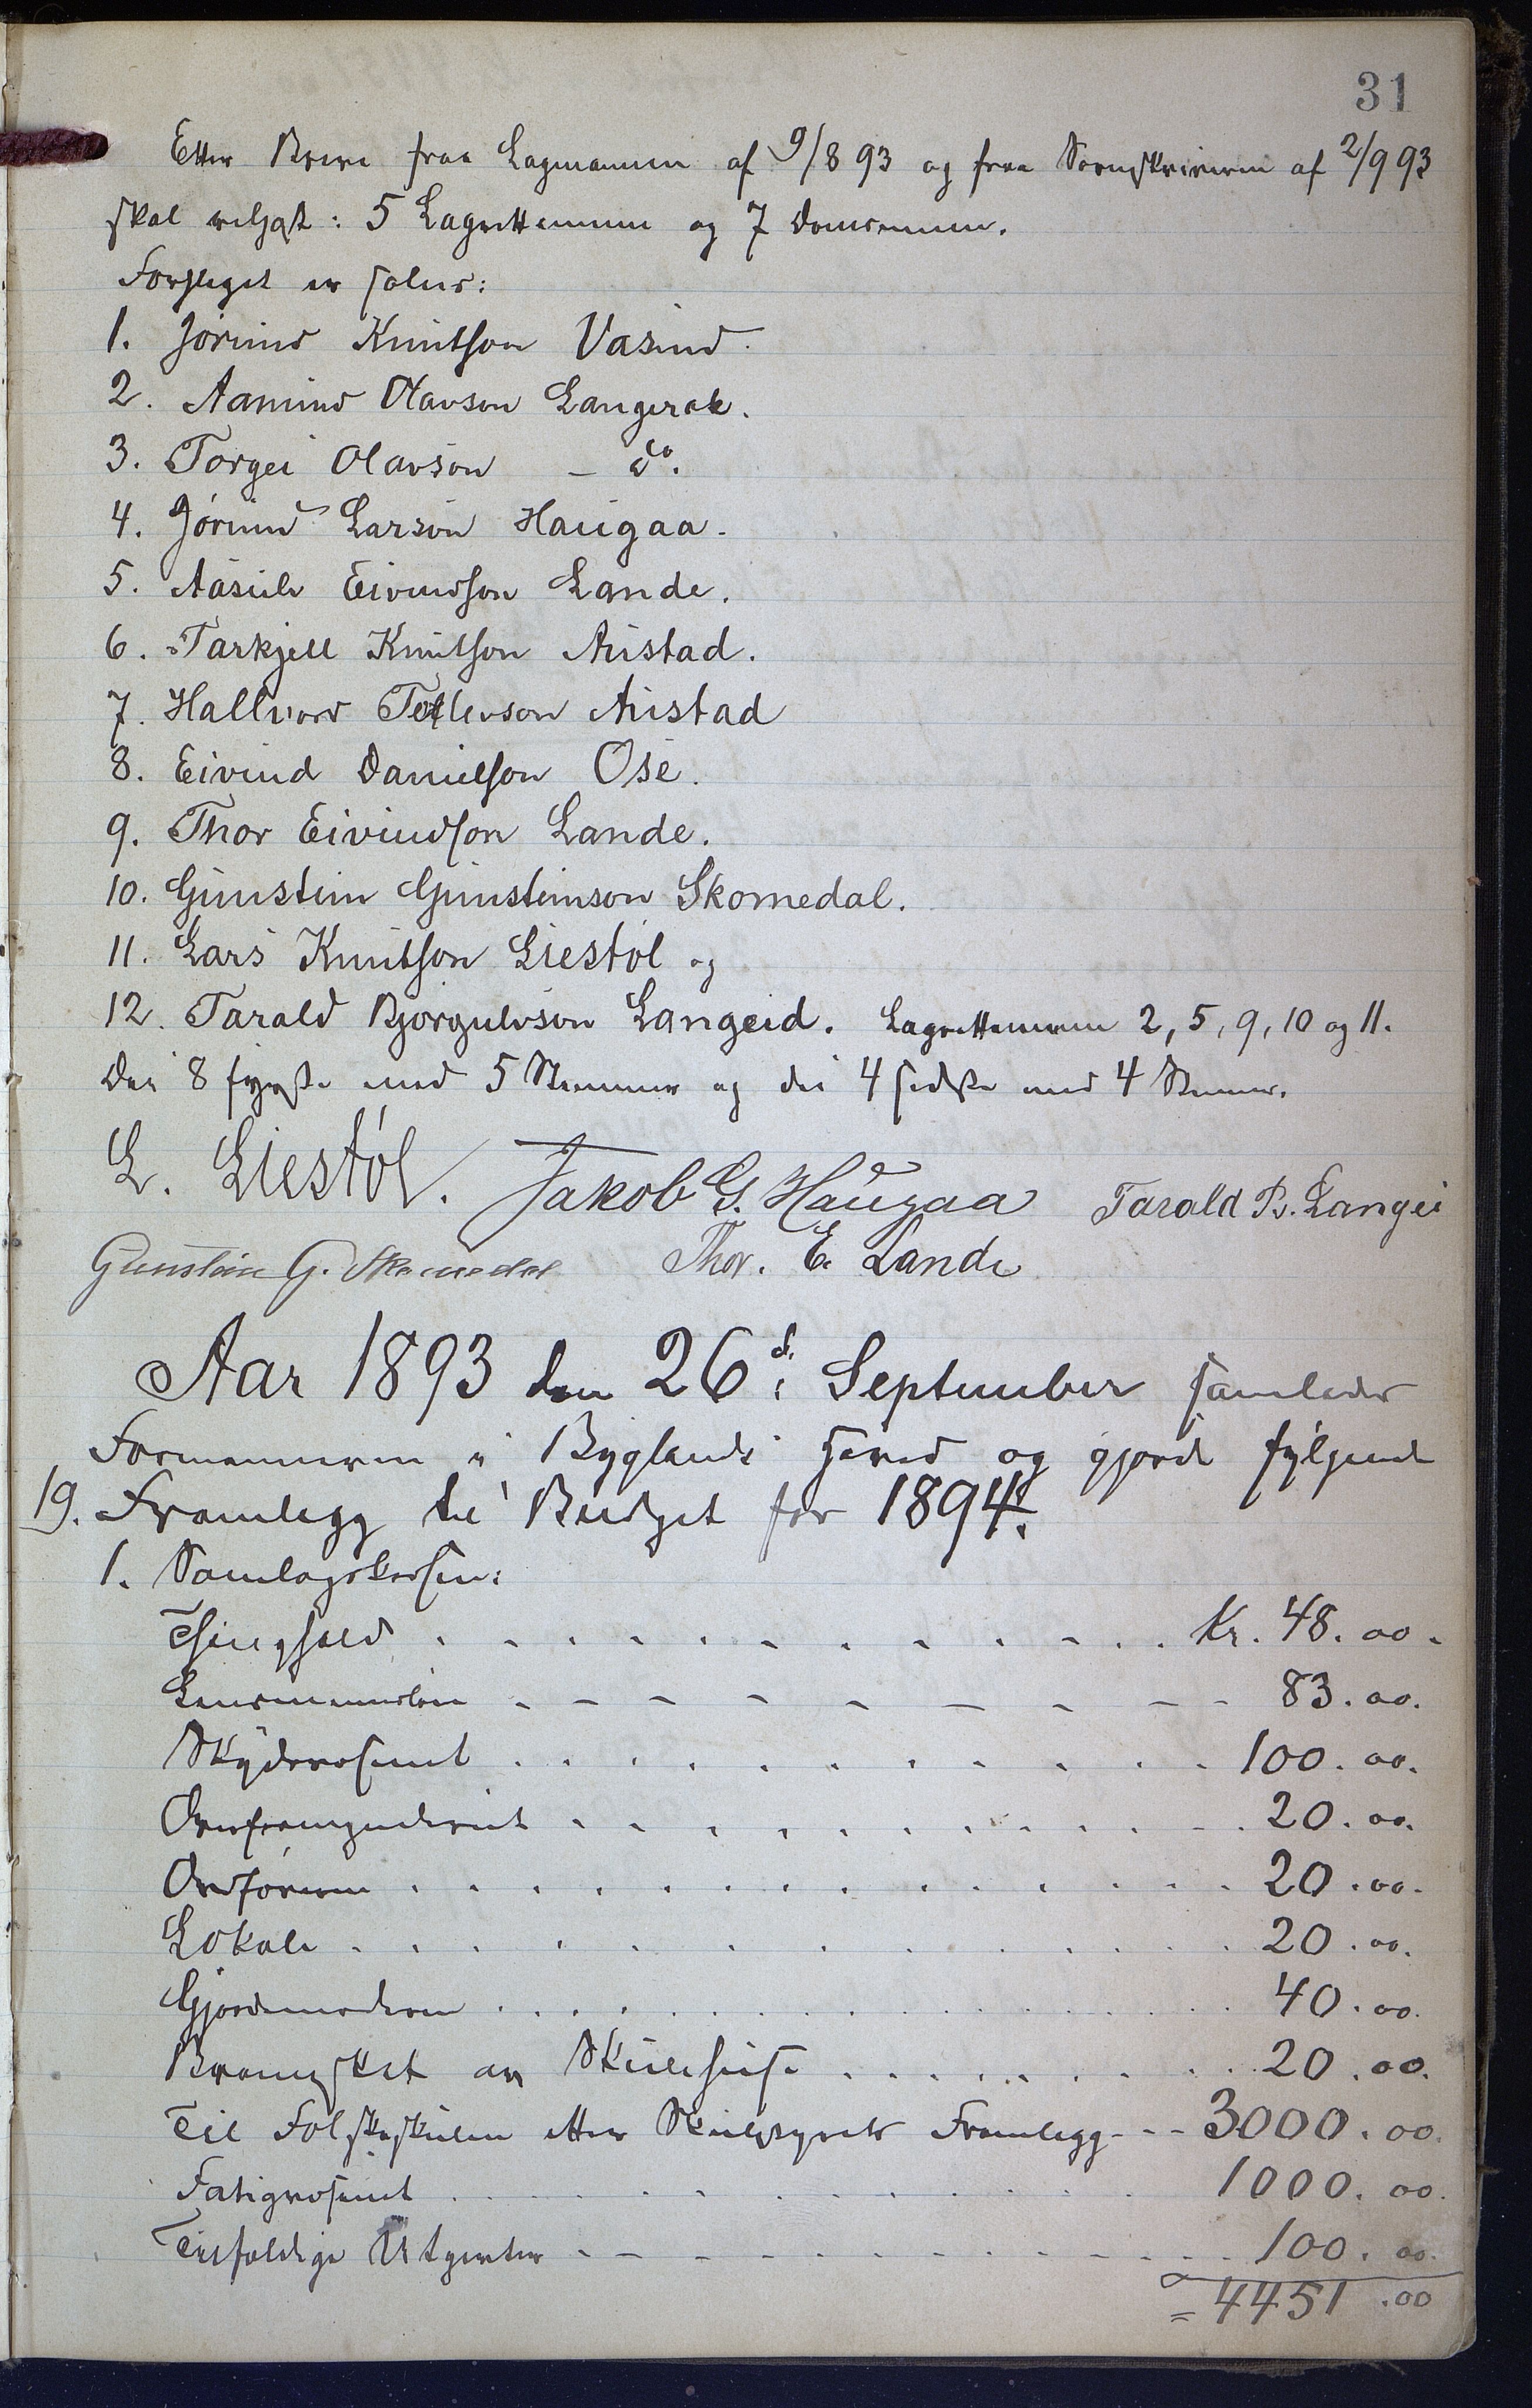 31
Etter Breve fraa Lagmannen af 9/8 93 og fraa Sorenskrivaren af 2/9 93
skal veljast: 5 Lagrettemenner og 7 Domsmenner.
Forslaget er soleis:
1. Jørund Knutson Vasend.
2. Aamund Olavson Langerak.
3. Torgei Olavson – do.
4. Jørund Larson Haugaa.
5. Aasulv Eivindson Lande.
6. Tarkjell Knutson Austad.
7. Hallvord Tellevson Austad
8. Eivind Danielson Ose.
9. Thor Eivindson Lande.
10. Gunstein Gunsteinson Skomedal.
11. Lars Knutson Liestøl og
12. Tarald Bjørgulvson Langeid. Lagrettemenner 2, 5, 9, 10 og 11.
Dei 8 fyrste med 5 Stemmer og dei 4 sidste med 4 Stemmer.
L. Liestøl. Jakob G. Haugaa Tarald B. Langei
Gunstein G. Skomedal Thor. E. Lande
Aar 1893 den 26d. September samlades
Formennerne i Byglands Hered og gjorde fylgjende
19. Framlegg til Budget for 1894.
1. Samlagskassen:
Thinghald . . . . . . . . . . . Kr. 48.00.
Lensmannsløn - - - - - - - - - 83.00.
Skydsvesenet . . . . . . . . . . 100.00.
Overformynderiet . . . . . . . . . . 20.00.
Ordføraren . . . . . . . . . . . . 20.00.
Lokale . . . . . . . . . . . 20.00.
Gjordemoderen . . . . . . . . . . 40.00.
Brannskat av Skulehuse . . . . . . . 20.00.
Til Folkeskulen etter Skulestyrets Framlegg - - 3000.00.
Fatigvesenet . . . . . . . . . . 1000.00.
Tilfeldige Utgifter - - - - - - - - - - 100.00.
= 4451.00